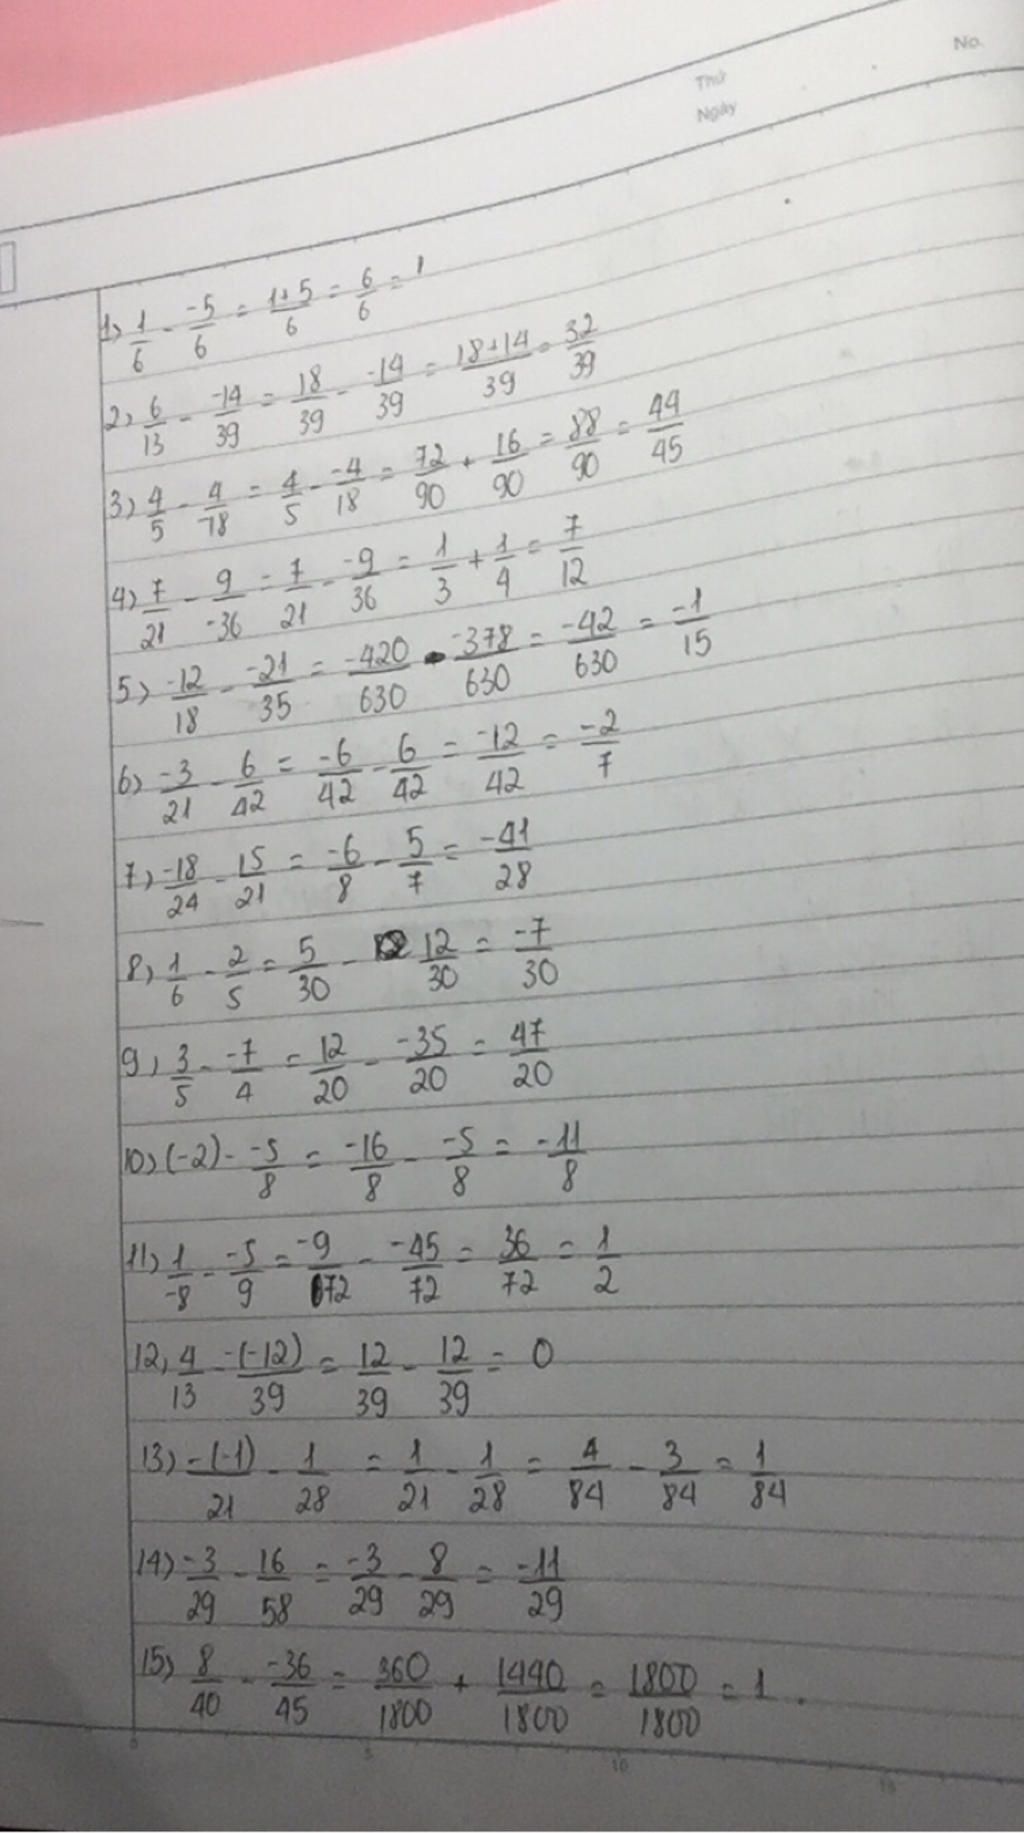 No.
Thứ
Ngày
1) 1/6 - -5/6 = 1+5/6 = 6/6 = 1
2) 6/13 - -14/39 = 18/39 - -14/39 = 18+14/39 = 32/39
3) 4/5 - 4/-18 = 4/5 - -4/18 = 72/90 + 16/90 = 88/90 = 44/45
4) 7/21 - 9/-36 = 7/21 - -9/36 = 1/3 + 1/4 = 7/12
5) -12/18 - -21/35 = -420/630 - -378/630 = -42/630 = -1/15
6) -3/21 - 6/42 = -6/42 - 6/42 = -12/42 = -2/7
7) -18/24 - 15/21 = -6/8 - 5/7 = -41/28
8) 1/6 - 2/5 = 5/30 - 12/30 = -7/30
9) 3/5 - -7/4 = 12/20 - -35/20 = 47/20
10) (-2) - -5/8 = -16/8 - -5/8 = -11/8
11) 1/-8 - -5/9 = -9/72 - -45/72 = 36/72 = 1/2
12, 4/13 - -(-12)/39 = 12/39 - 12/39 = 0
13) -(-1)/21 - 1/28 = 1/21 - 1/28 = 4/84 - 3/84 = 1/84
14) -3/29 - 16/58 = -3/29 - 8/29 = -11/29
15) 8/40 - -36/45 = 360/1800 + 1440/1800 = 1800/1800 = 1.
0 5 10 15